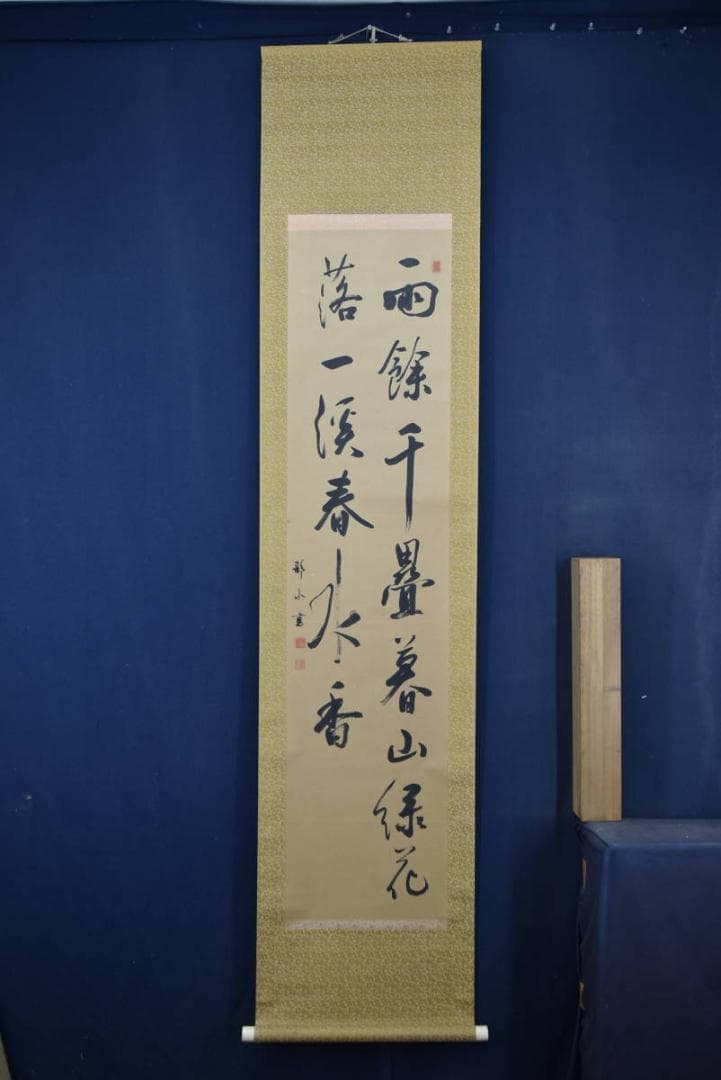 雨餘千疊暮山綠花
落一溪春水香